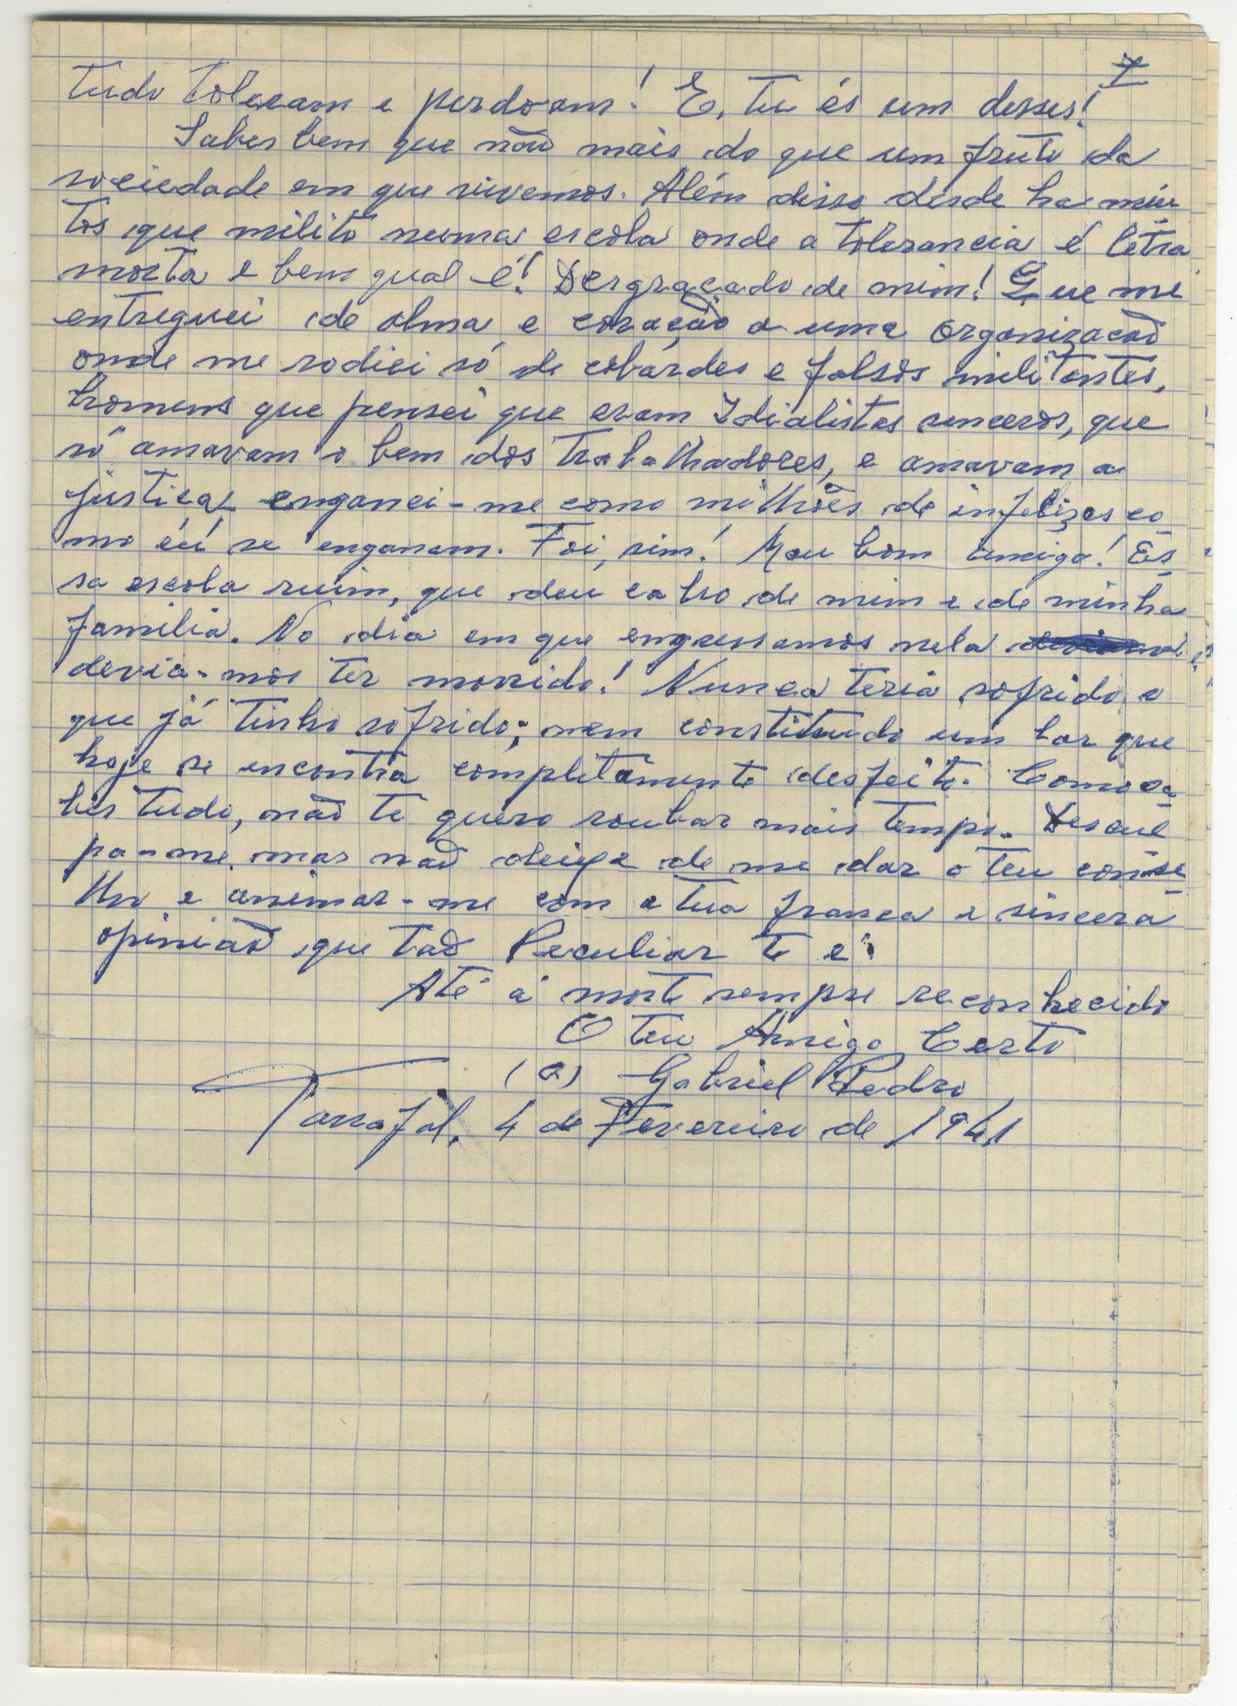 7
tudo toleram e perdoam! E, tu és um desses!
Sabes bem que não mais do que um fruto da
sociedade em que vivemos. Além disso desde ha mui
tos que milito numa escola onde a tolerancia é letra
morta e bem qual é! Desgraçado de mim! Que me
entreguei de alma e coração a uma organização
onde me rodiei só de cobardes e falsos militantes,
homens que pensei que eram Idialistas sinceros, que
só amavam o bem dos trabalhadores, e amavam a
justiça, enganei-me como milhões de infelizes co-
mo eu se enganam. Foi, sim! Meu bom amigo! Es-
sa escola ruim, que deu cabo de mim e de minha
familia. No dia em que engressamos nela
devia-mos ter morrido! Nunca teria sofrido o
que já tinho sofrido; nem constituido um lar que
hoje se encontra completamente desfeito. Como sa-
bes tudo, não te quero roubar mais tempo. Descul
pa-me, mas não deixe de me dar o teu conse-
lho e animar-me com a tua franca e sincera
opinião que tão Peculiar te é.
Até á morte sempre reconhecido
O teu Amigo Certo
(a) Gabriel Pedro
Tarrafal, 4 de Fevereiro de 1941